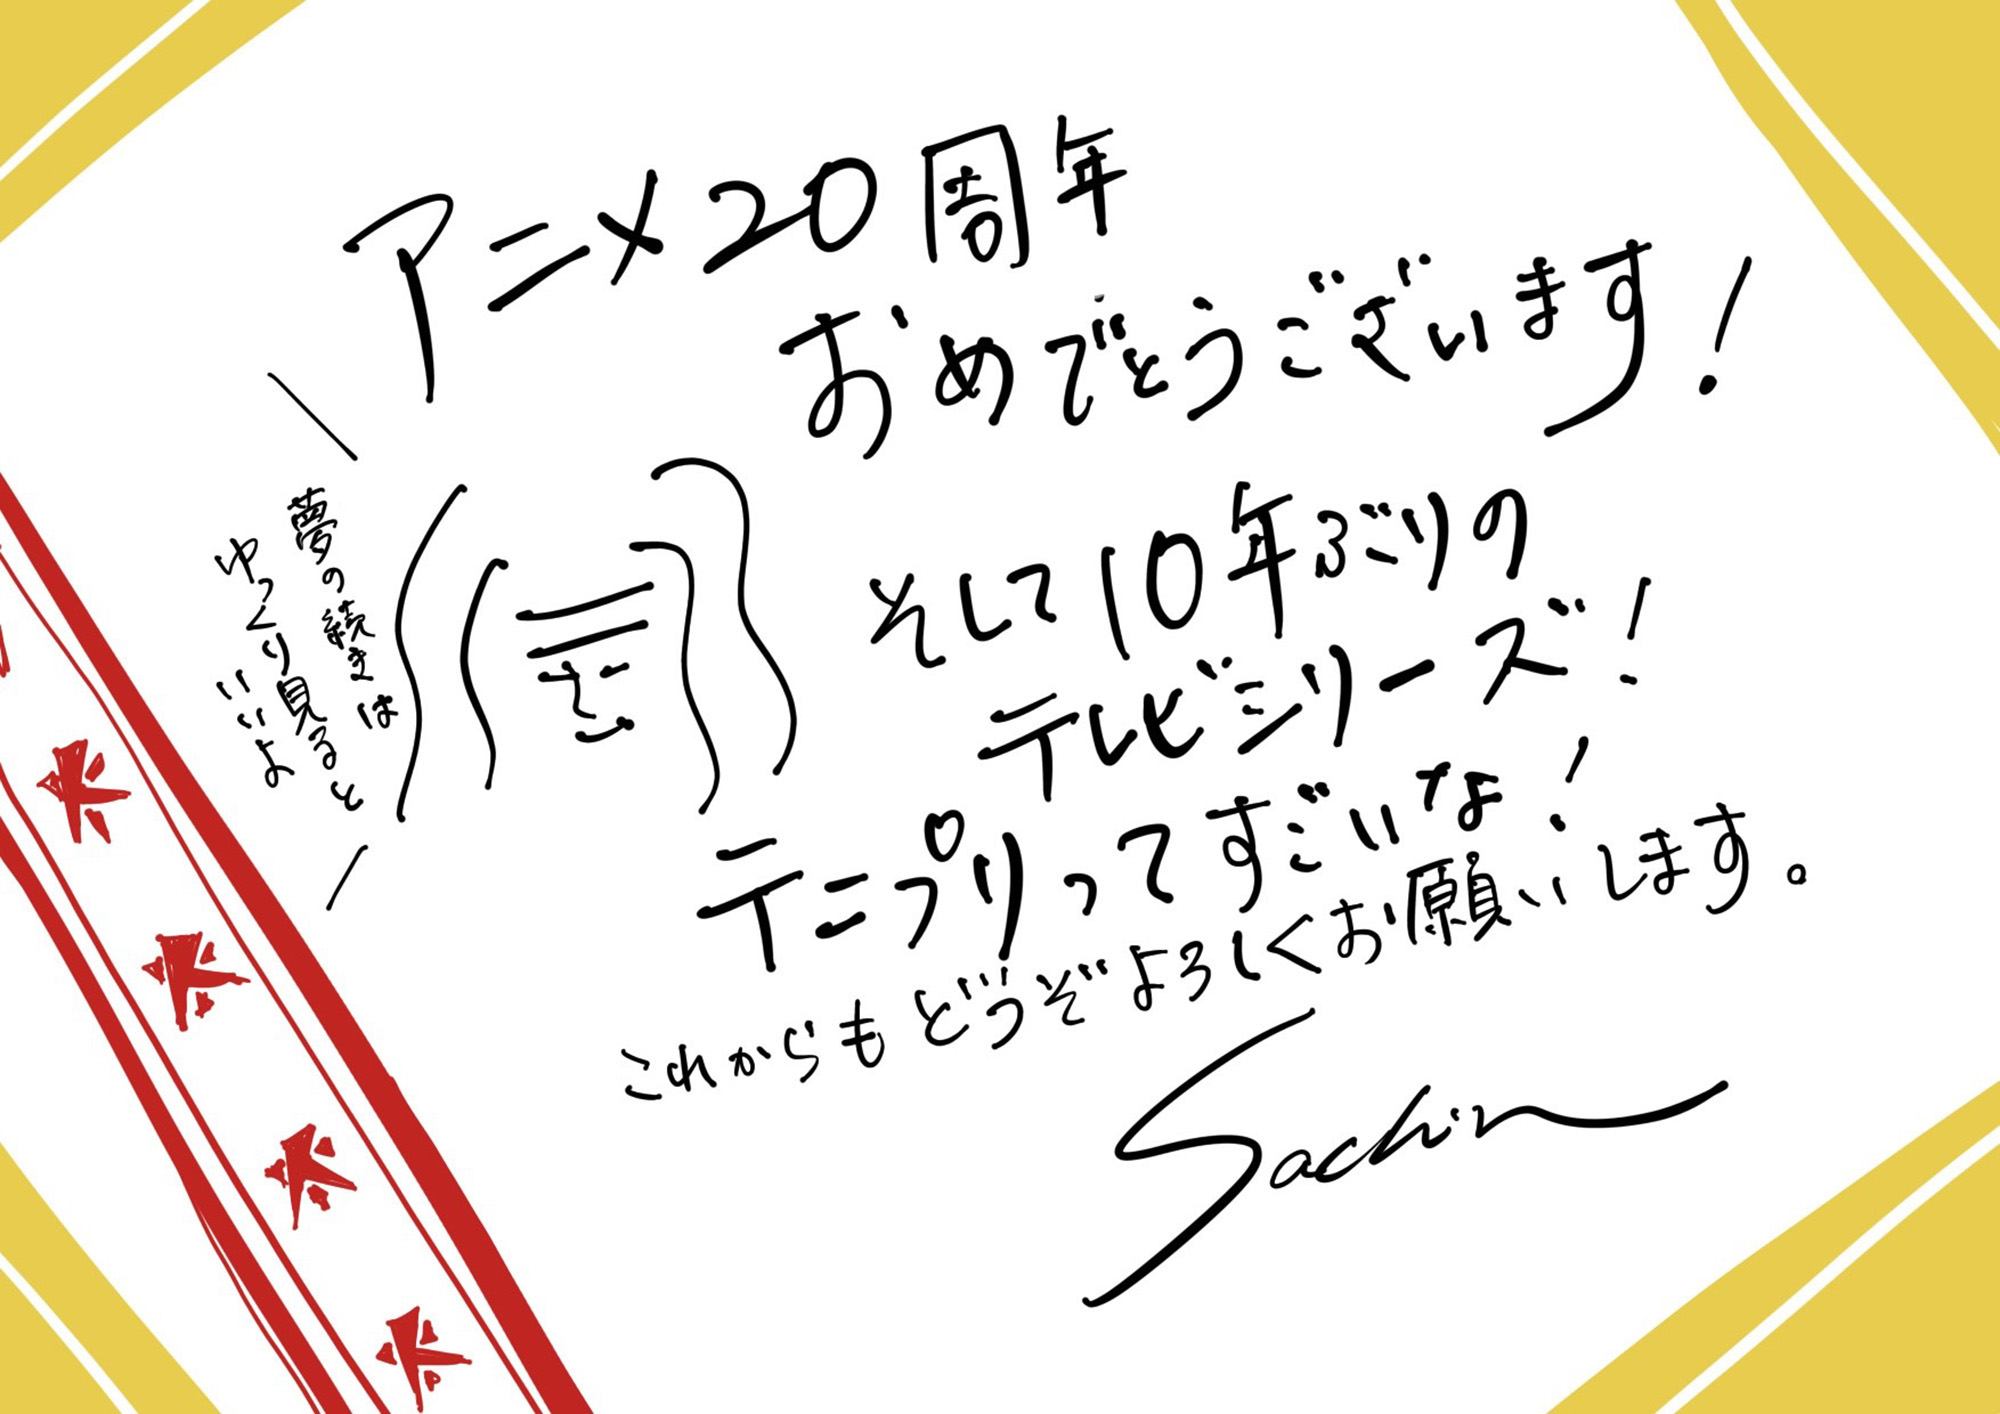 アニメ20周年
おめでとうございます!
そして10年ぶりの
テレビシリーズ!
テニプリってすごいな!
これからもどうぞよろしくお願いします。
夢の続きは
ゆっくり見ると
いいよ
Sachin